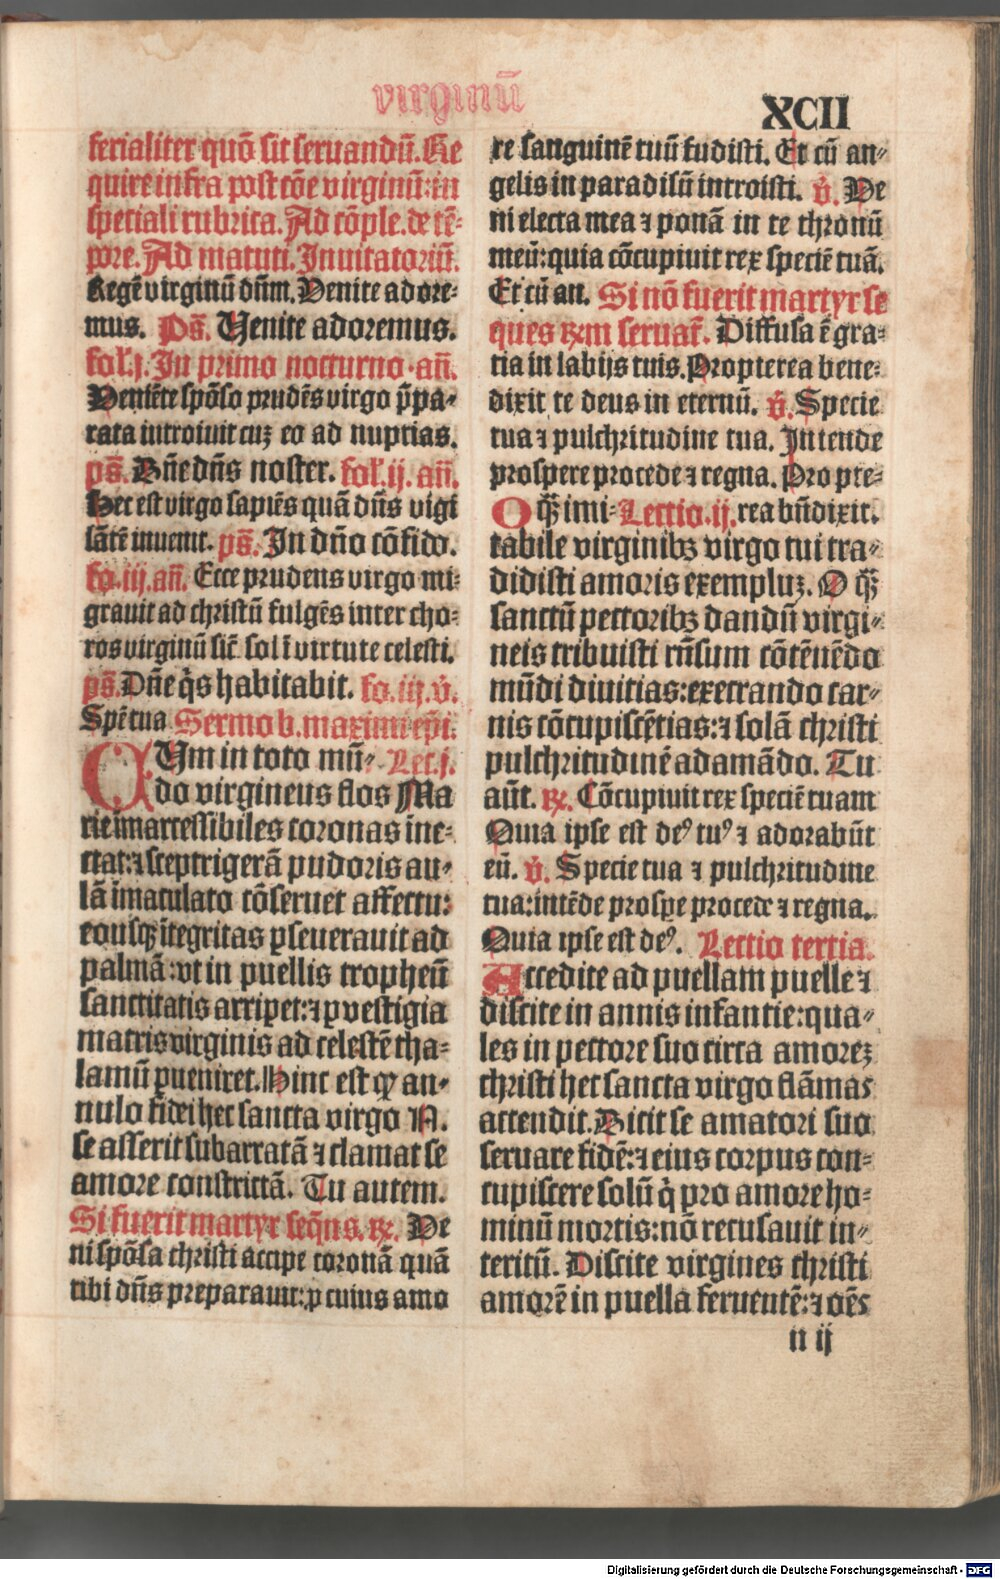 virginū
XCII
ferialiter quō sit seruandū. Re
quire infra post cōe virginū: in
speciali rubrica. Ad cōple. de tē⸗
pore. Ad matuti. Inuitatoriū.
Regē virginū dūm. Venite adore⸗
mus. ps̄. Venite adoremus.
fol. j. In primo nocturno. añ.
Veniēte spōso prudēs virgo p̄pa⸗
rata introiuit cuꝫ eo ad nuptias.
ps̄. Dñe dñs noster. fol. ij. añ.
Hec est virgo sapiēs quā dñs vigi
lātē inuenit. ps̄. In dño cōfido.
fo. iij. añ. Ecce prudens virgo mi⸗
grauit ad christū fulgēs inter cho⸗
ros virginū sic̄ sol ī virtute celesti.
ps̄. Dñe q̇s habitabit. fo. iij. v̄.
Spē tua Sermo b. maximi ep̄i.
CUm in toto mū⸗ Lec. j.
do virgineus flos Ma
rie īmarcessibiles coronas inc⸗
ctat: ⁊ sceptrigerā pudoris au⸗
lā imaculato cōseruet affectu:
eousqꝫ ītegritas ꝑseuerauit ad
palmā: vt in puellis tropheū
sanctitatis arriꝑet: ⁊ ꝑ vestigia
matris virginis ad celestē tha⸗
lamū ꝑueniret. Hinc est ꝙ an⸗
nulo fidei hec sancta virgo N.
se asserit subarratā ⁊ clamat se
amore constrictā. Tu autem.
Si fuerit martyr seq̄ns. ℞. Ve
ni spōsa christi accipe coronā quā
tibi dñs preparauit: ꝓ cuius amo
re sanguinē tuū fudisti. Et cū an⸗
gelis in paradisū introisti. v̄. Ve
ni electa mea ⁊ ponā in te thronū
meū: quia cōcupiuit rex speciē tuā.
Et cū an. Si nō fuerit martyr se
ques ℞m seruat̄. Diffusa ē gra⸗
tia in labijs tuis. Propterea bene⸗
dixit te deus in eternū. v̄. Specie
tua ⁊ pulchritudine tua. Intende
prospere procede ⁊ regna. Propte⸗
O qꝫ̄ imi⸗ Lectio. ij. rea bn̄dixit.
tabile virginibꝫ virgo tui tra⸗
didisti amoris exempluꝫ. O qꝫ̄
sanctū pectoribꝫ dandū virgi⸗
neis tribuisti rūsum cōtēnēdo
mūdi diuitias: execrando car⸗
nis cōcupiscētias: ⁊ solā christi
pulchritudinē adamādo. Tu
aūt. ℞. Cōcupiuit rex speciē tuam
Quia ipse est deꝰ tuꝰ ⁊ adorabūt
eū. v̄. Specie tua ⁊ pulchritudine
tua: intēde prosꝑe procede ⁊ regna.
Quia ipse est deꝰ. Lectio tertia.
Accedite ad puellam puelle ⁊
discite in annis infantie: qua⸗
les in pectore suo circa amoreꝫ
christi hec sancta virgo flāmas
attendit. Dicit se amatori suo
seruare fidē: ⁊ eius corpus con⸗
cupiscere solū q̇ pro amore ho⸗
minū mortis: nō recusauit in⸗
teritū. Discite virgines christi
amorē in puella feruentē: ⁊ oēs
n ij
Digitalisierung gefördert durch die Deutsche Forschungsgemeinschaft - DFG